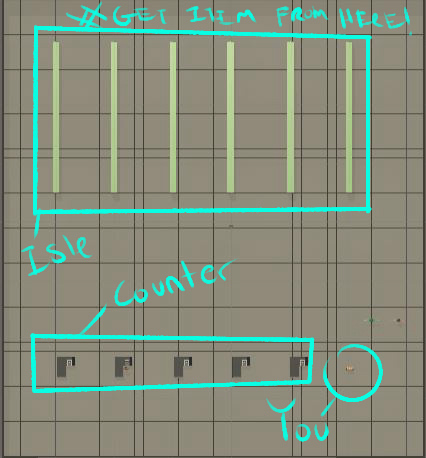 #GET ITEM FROM HERE!
Isle
Counter
You